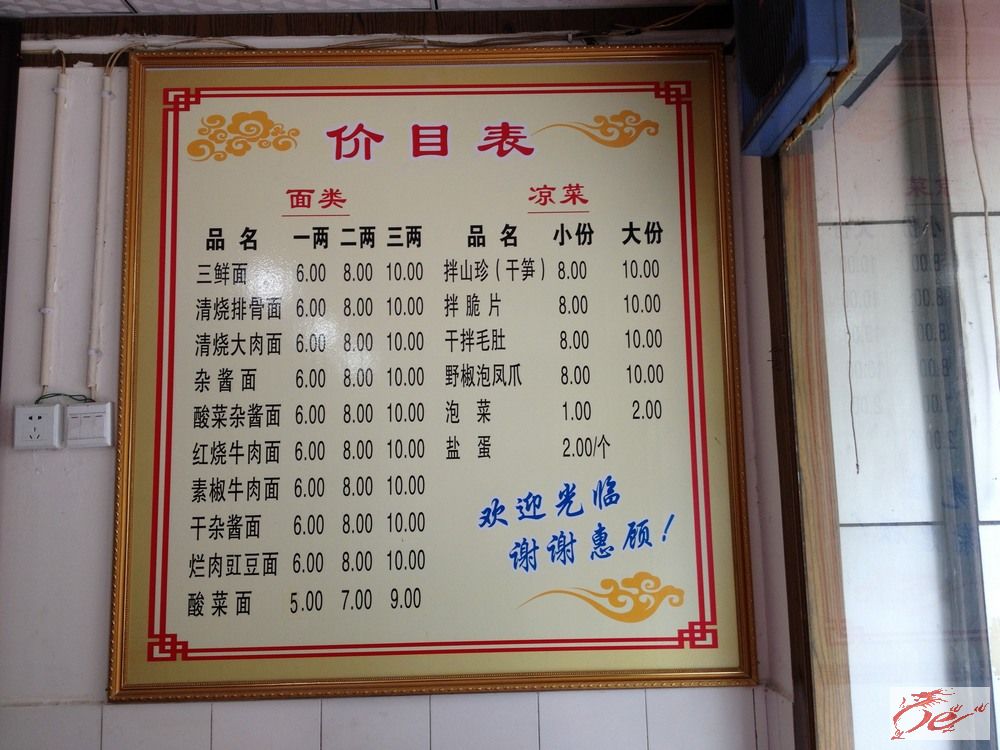 价目表
面类
品名 一两 二两 三两
三鲜面 6.00 8.00 10.00
清烧排骨面 6.00 8.00 10.00
清烧大肉面 6.00 8.00 10.00
杂酱面 6.00 8.00 10.00
酸菜杂酱面 6.00 8.00 10.00
红烧牛肉面 6.00 8.00 10.00
素椒牛肉面 6.00 8.00 10.00
干杂酱面 6.00 8.00 10.00
烂肉豇豆面 6.00 8.00 10.00
酸菜面 5.00 7.00 9.00
凉菜
品名 小份 大份
拌山珍(干笋) 8.00 10.00
拌脆片 8.00 10.00
干拌毛肚 8.00 10.00
野椒泡凤爪 8.00 10.00
泡菜 1.00 2.00
盐蛋 2.00/个
欢迎光临
谢谢惠顾!